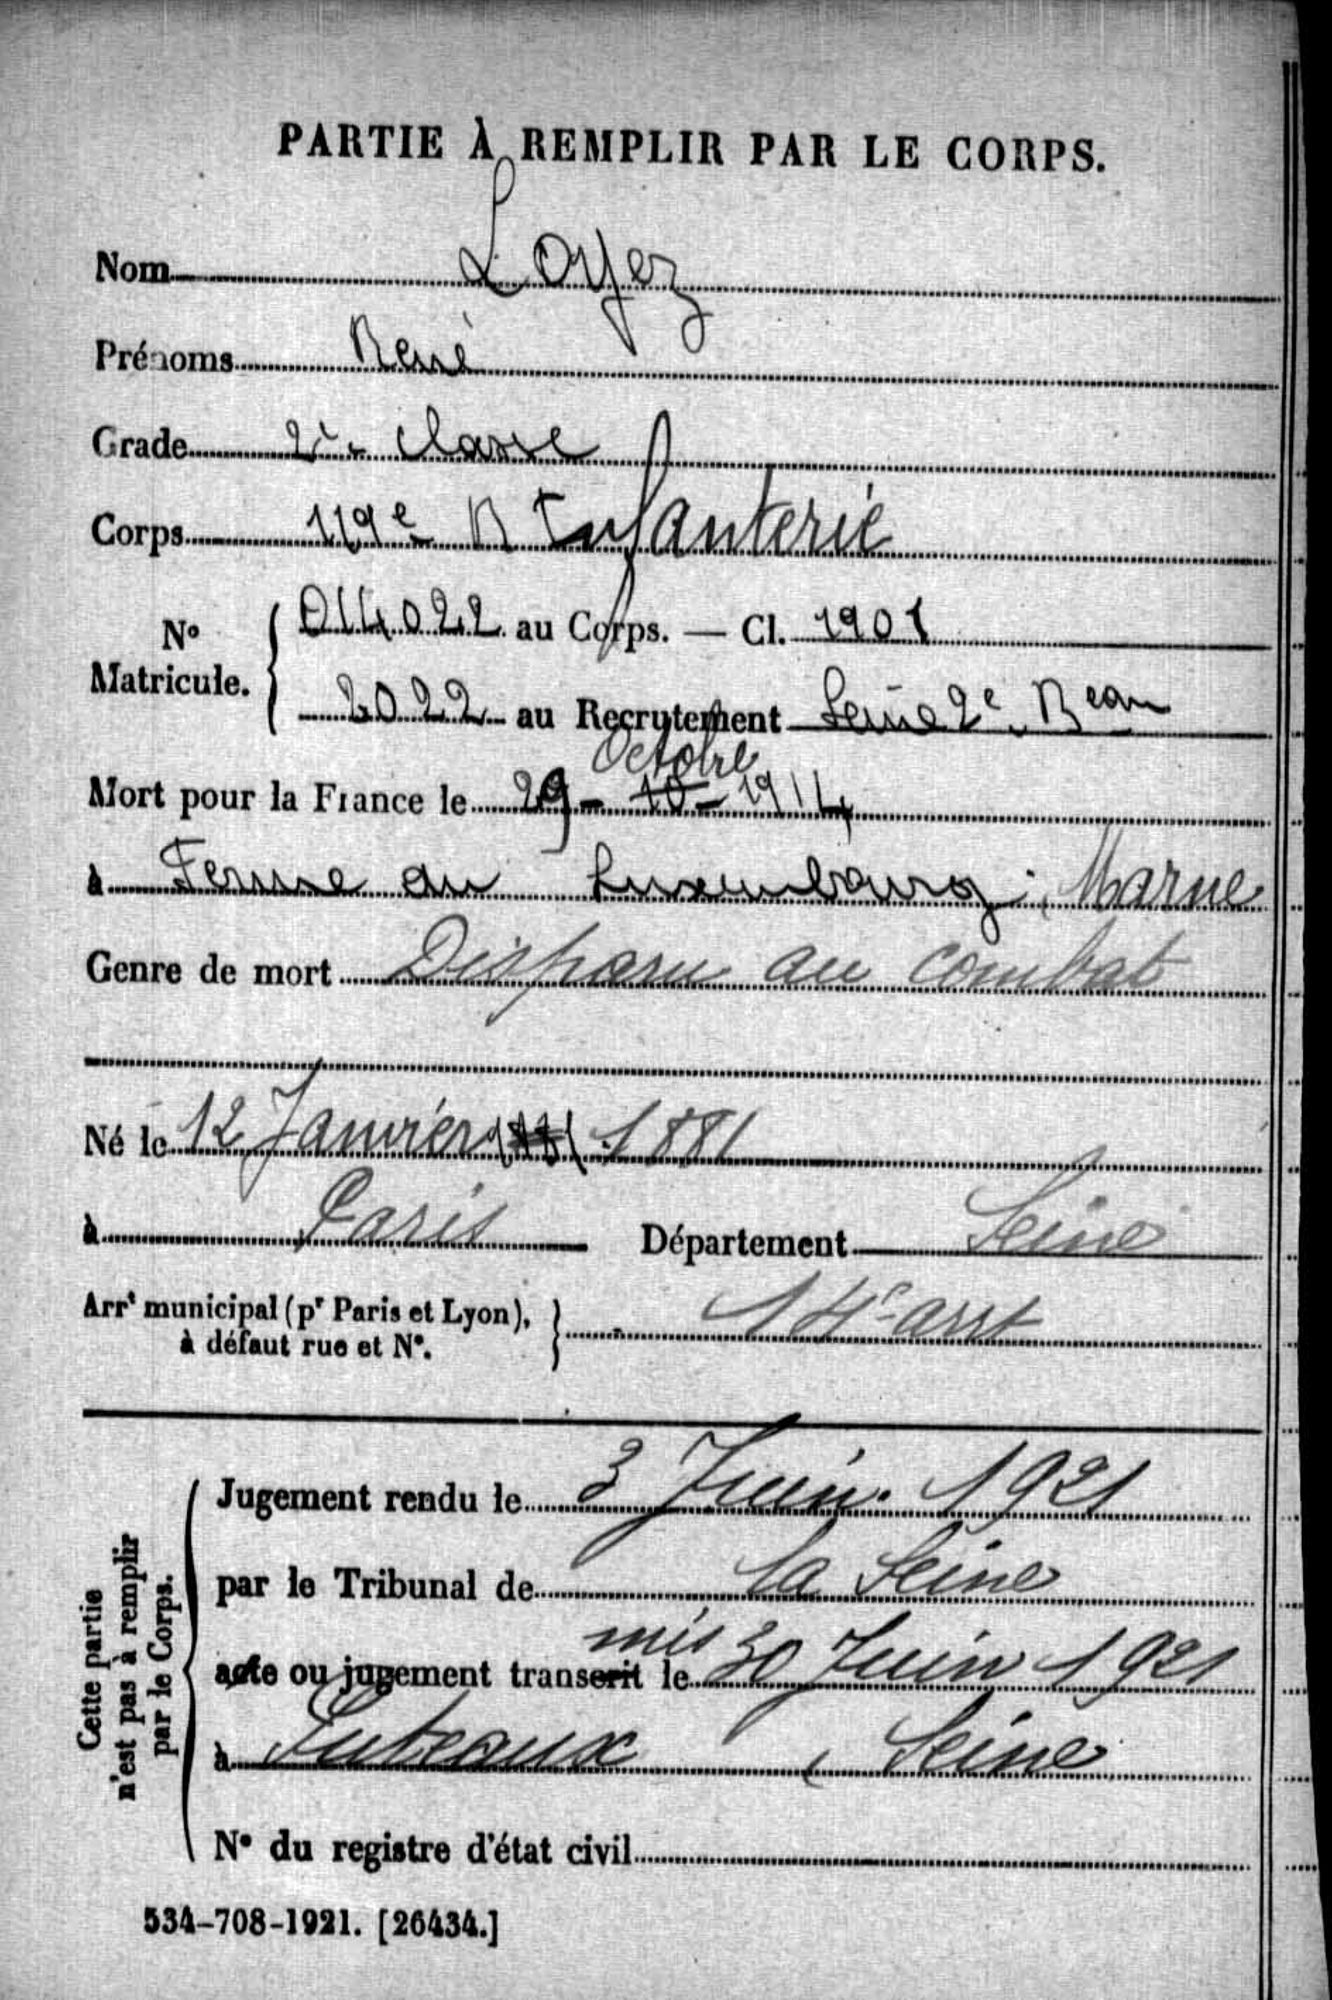 PARTIE À REMPLIR PAR LE CORPS.
Nom Loyez
Prénoms René
Grade 2e classe
Corps 119e R Infanterie
No Matricule. 014022 au Corps. — Cl. 1901
2022 au Recrutement Seine 2e Beau
Octobre
Mort pour la France le 29 - 10 - 1914
à Ferme du Luxembourg, Marne
Genre de mort Disparu au combat
Né le 12 Janvier 1881
à Paris Département Seine
Arrt municipal (pr Paris et Lyon), à défaut rue et N°. 14e arrt
Cette partie n'est pas à remplir par le Corps.
Jugement rendu le 3 Juin 1921
par le Tribunal de la Seine
mis
acte ou jugement transcrit le 30 Juin 1921
à Puteaux, Seine
N° du registre d'état civil
534-708-1921. [26434.]